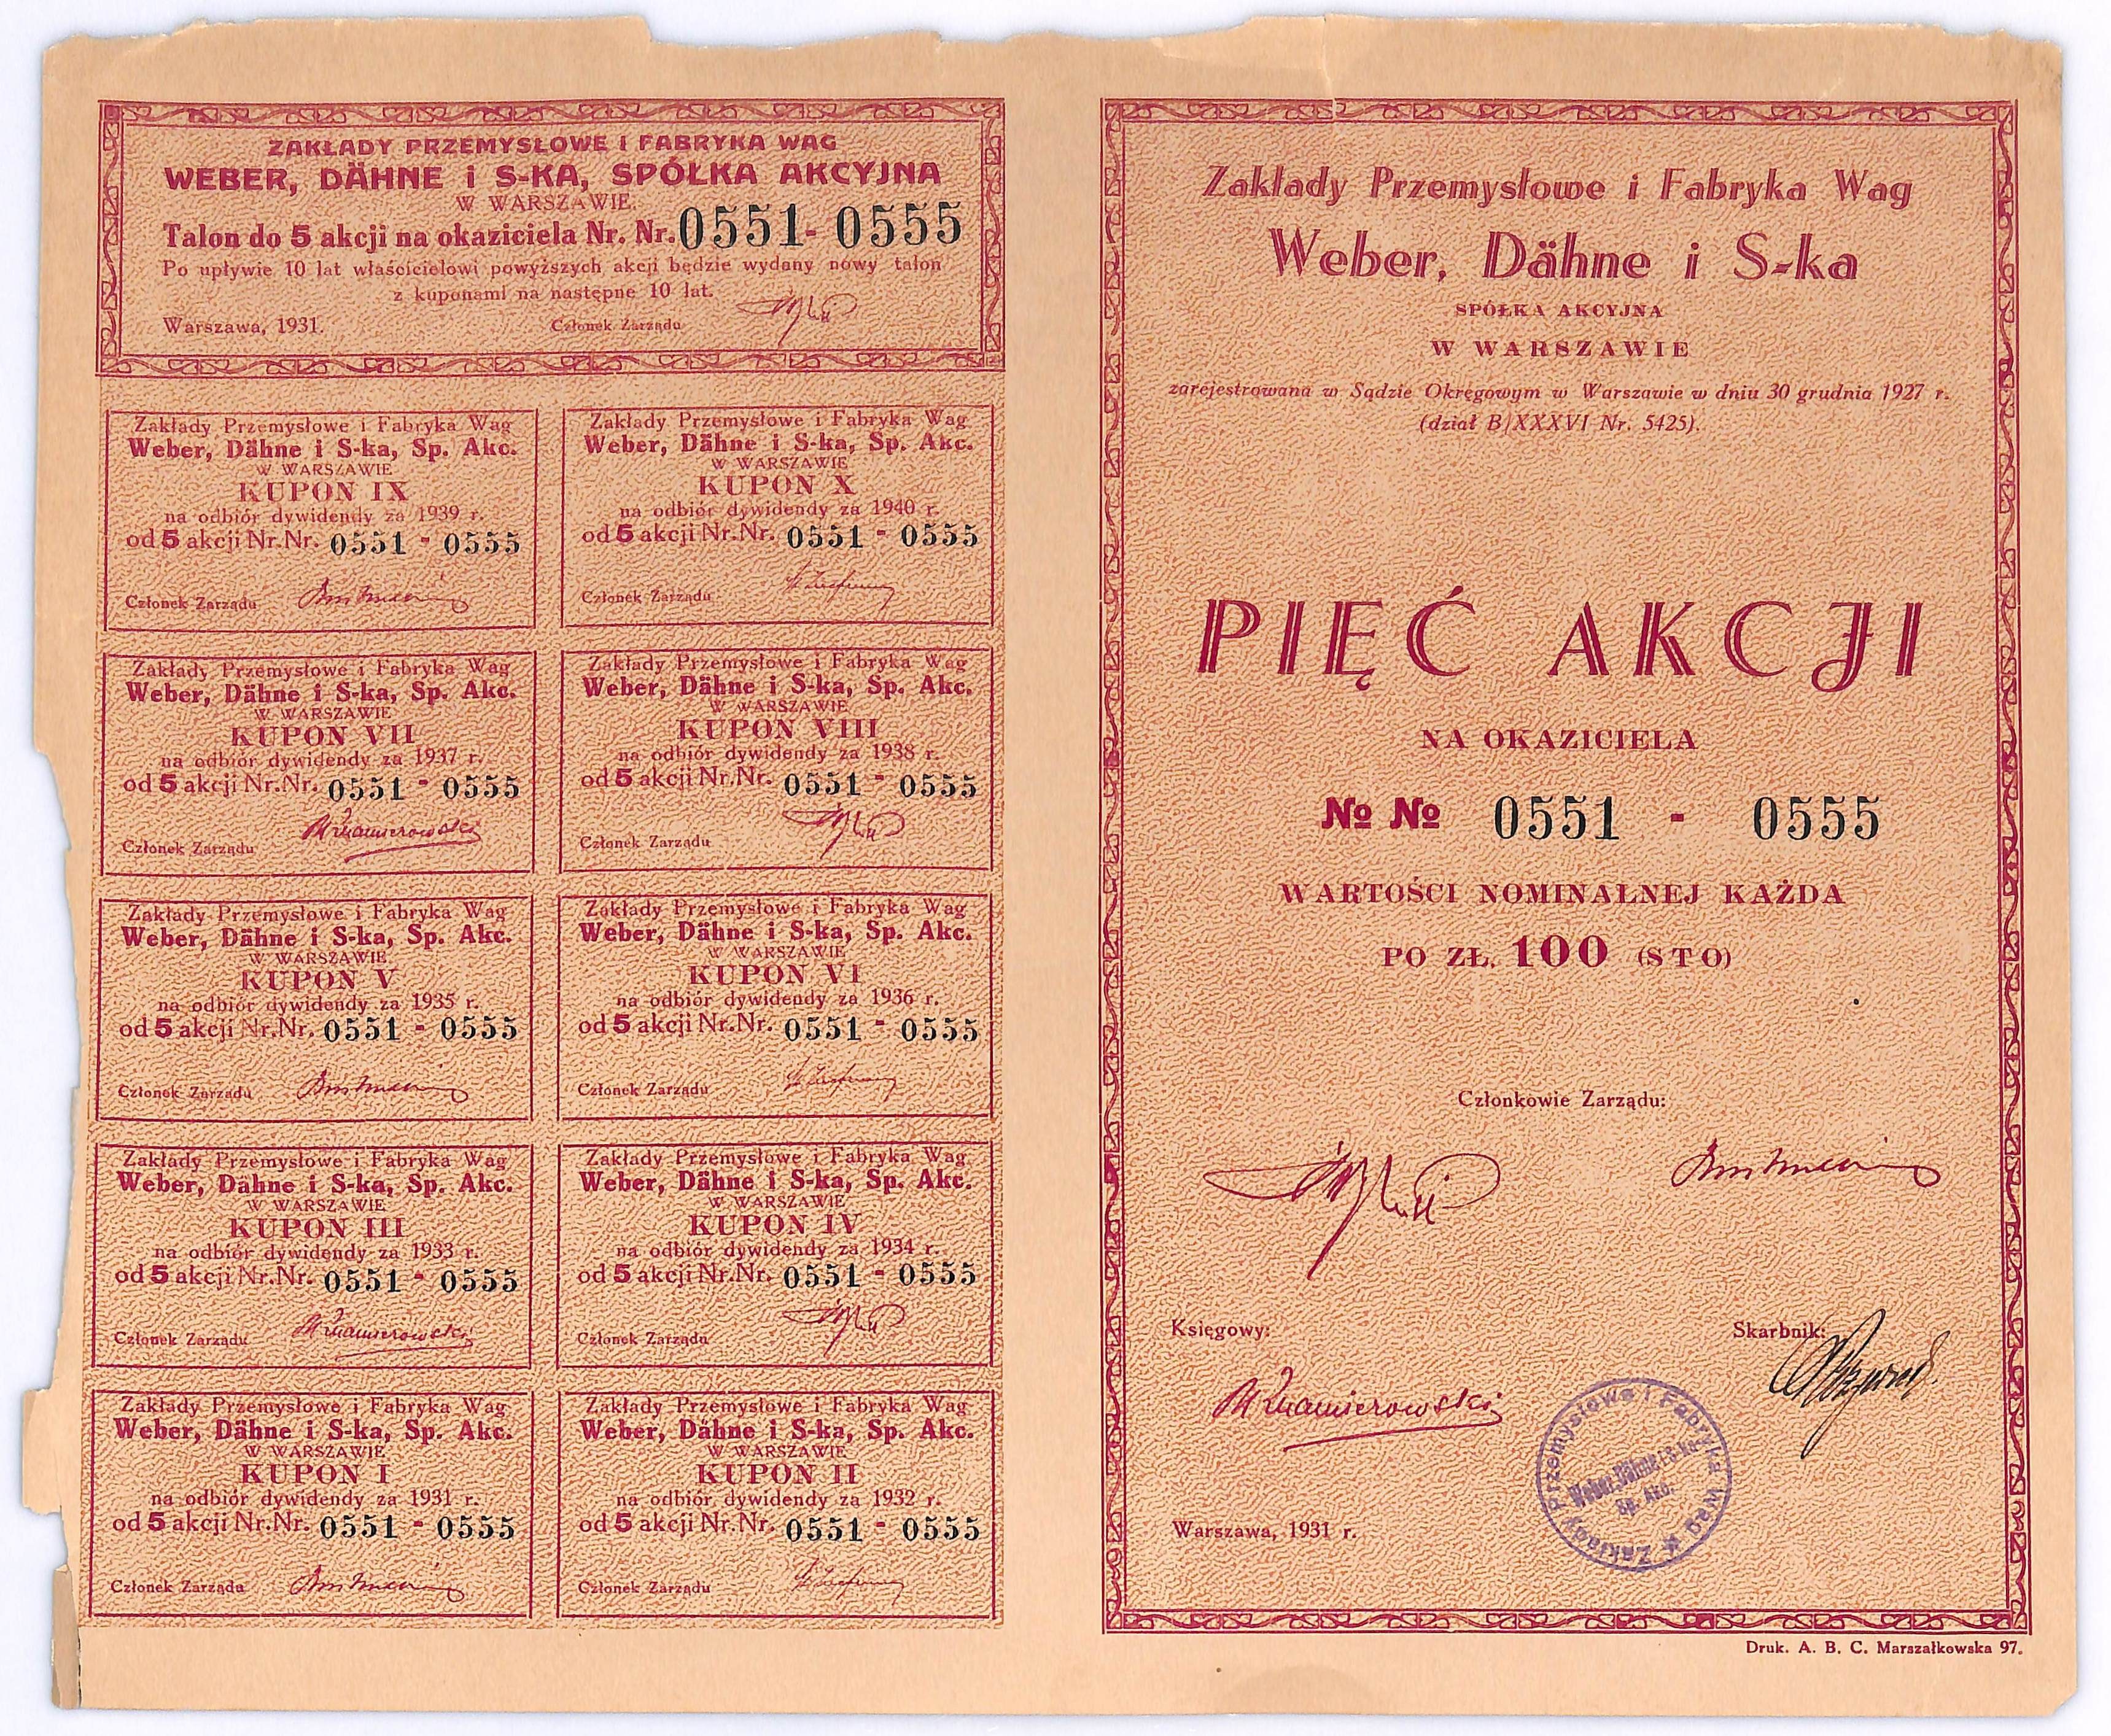 ZAKŁADY PRZEMYSŁOWE I FABRYKA WAG
WEBER, DÄHNE i S-KA, SPÓŁKA AKCYJNA
W WARSZAWIE.
Talon do 5 akcji na okaziciela Nr. Nr. 0551 - 0555
Po upływie 10 lat właścicielowi powyższych akcji będzie wydany nowy talon
z kuponami na następne 10 lat.
Warszawa, 1931. Członek Zarządu
Zakłady Przemysłowe i Fabryka Wag
Weber, Dähne i S-ka, Sp. Akc.
W WARSZAWIE
KUPON IX
na odbiór dywidendy za 1939 r.
od 5 akcji Nr.Nr. 0551 - 0555
Członek Zarządu
Zakłady Przemysłowe i Fabryka Wag
Weber, Dähne i S-ka, Sp. Akc.
W WARSZAWIE
KUPON X
na odbiór dywidendy za 1940 r.
od 5 akcji Nr.Nr. 0551 - 0555
Członek Zarządu
Zakłady Przemysłowe i Fabryka Wag
Weber, Dähne i S-ka, Sp. Akc.
W WARSZAWIE
KUPON VII
na odbiór dywidendy za 1937 r.
od 5 akcji Nr.Nr. 0551 - 0555
Członek Zarządu
Zakłady Przemysłowe i Fabryka Wag
Weber, Dähne i S-ka, Sp. Akc.
W WARSZAWIE
KUPON VIII
na odbiór dywidendy za 1938 r.
od 5 akcji Nr.Nr. 0551 - 0555
Członek Zarządu
Zakłady Przemysłowe i Fabryka Wag
Weber, Dähne i S-ka, Sp. Akc.
W WARSZAWIE
KUPON V
na odbiór dywidendy za 1935 r.
od 5 akcji Nr.Nr. 0551 - 0555
Członek Zarządu
Zakłady Przemysłowe i Fabryka Wag
Weber, Dähne i S-ka, Sp. Akc.
W WARSZAWIE
KUPON VI
na odbiór dywidendy za 1936 r.
od 5 akcji Nr.Nr. 0551 - 0555
Członek Zarządu
Zakłady Przemysłowe i Fabryka Wag
Weber, Dähne i S-ka, Sp. Akc.
W WARSZAWIE
KUPON III
na odbiór dywidendy za 1933 r.
od 5 akcji Nr.Nr. 0551 - 0555
Członek Zarządu
Zakłady Przemysłowe i Fabryka Wag
Weber, Dähne i S-ka, Sp. Akc.
W WARSZAWIE
KUPON IV
na odbiór dywidendy za 1934 r.
od 5 akcji Nr.Nr. 0551 - 0555
Członek Zarządu
Zakłady Przemysłowe i Fabryka Wag
Weber, Dähne i S-ka, Sp. Akc.
W WARSZAWIE
KUPON I
na odbiór dywidendy za 1931 r.
od 5 akcji Nr.Nr. 0551 - 0555
Członek Zarządu
Zakłady Przemysłowe i Fabryka Wag
Weber, Dähne i S-ka, Sp. Akc.
W WARSZAWIE
KUPON II
na odbiór dywidendy za 1932 r.
od 5 akcji Nr.Nr. 0551 - 0555
Członek Zarządu
Zakłady Przemysłowe i Fabryka Wag
Weber, Dähne i S-ka
SPÓŁKA AKCYJNA
W WARSZAWIE
zarejestrowana w Sądzie Okręgowym w Warszawie w dniu 30 grudnia 1927 r.
(dział B/XXXVI Nr. 5425).
PIĘĆ AKCJI
NA OKAZICIELA
№ № 0551 - 0555
WARTOŚCI NOMINALNEJ KAŻDA
PO ZŁ. 100 (STO)
Członkowie Zarządu:
Księgowy: Skarbnik:
Zakłady Przemysłowe i Fabryka Wag
Weber, Dähne i S-ka
Sp. Akc.
Warszawa, 1931 r.
Druk. A. B. C. Marszałkowska 97.